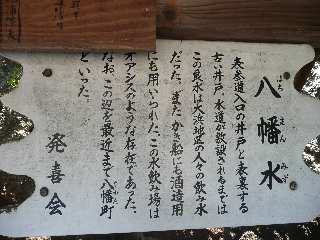 八幡水
はちまんみず
表参道入口の井戸と表裏する
古い井戸。水道が敷設されるまでは
この良水は大浜地区の人々の飲み水
だった。またかき船にも酒造用
にも用いられた。この水飲み場は
オアシスのような存在であった。
なお、この辺を最近まで八幡町
といった。
発喜会